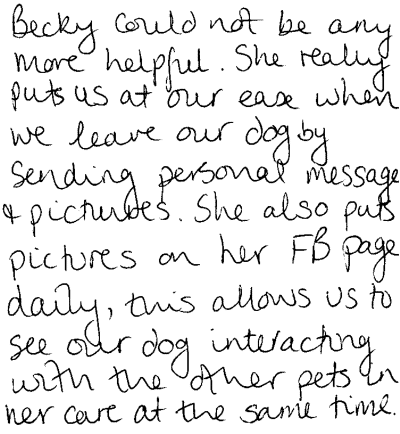 Becky could not be any
more helpful. She really
puts us at our ease when
we leave our dog by
sending personal message
& pictures. She also puts
pictures on her FB page
daily, this allows us to
see our dog interacting
with the other pets in
her care at the same time.